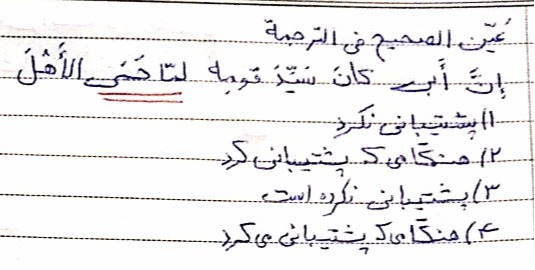 عَيّن الصحيح فى الترجمة
إِنَّ أَبى كانَ سَيِّدَ قَومِهِ لمّا حَمَى الأَهْلَ
۱) پشتیبانی نکرد
۲) هنگامی که پشتیبانی کرد
۳) پشتیبانی نکرده است
۴) هنگامی که پشتیبانی می کرد